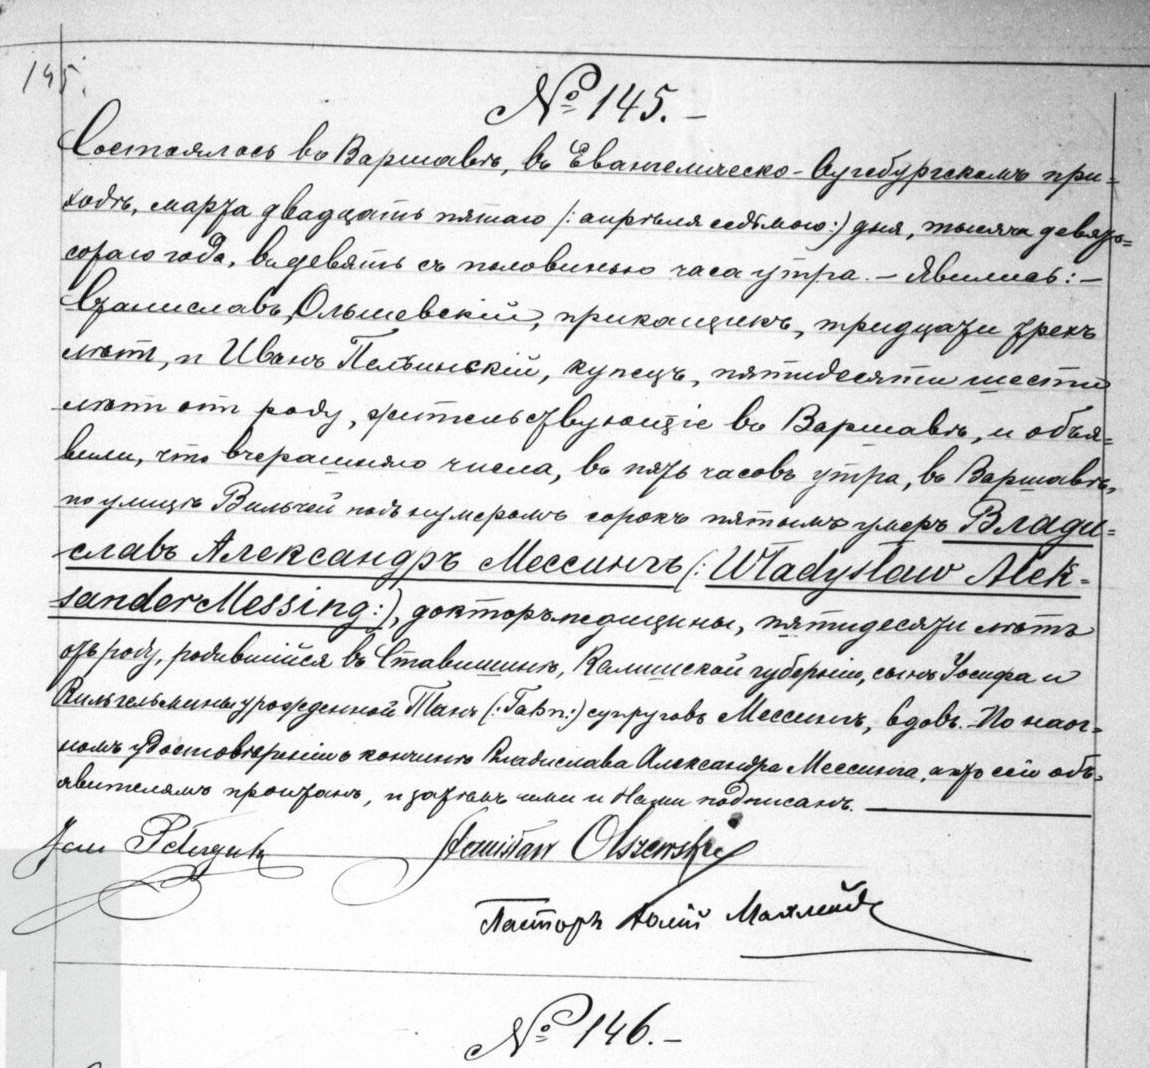 145.
№ 145.-
Состоялось въ Варшавѣ, въ Евангелическо-Аугсбургскомъ при=
ходѣ, марта двадцать пятаго /: апрѣля седьмого :) дня, тысяча девять=
сотаго года, въ девять съ половиною часа утра. - Явились: -
Станиславъ Ольшевскій, прикащикъ, тридцати трехъ
лѣтъ, и Иванъ, купецъ, пятидесяти шести
лѣтъ отъ роду, жительствующіе въ Варшавѣ, и объя=
вили, что вчерашняго числа, въ пять часовъ утра, въ Варшавѣ,
по улицѣ Вильчей подъ нумеромъ сорокъ пятымъ умеръ Влади=
славъ Александръ Мессингъ (: Władysław Alek-
sander Messing :), докторъ медицины, пятидесяти лѣтъ
отъ роду, родившійся въ Ставишинѣ, Калишской губерніи, сынъ Іосифа и
Вильгельмины урожденной Танъ (: :) супруговъ Мессингъ, вдовъ. По наоч=
номъ удостовѣреніи о кончинѣ Владислава Александра Мессинга, актъ сей объ=
явителямъ прочтанъ, и затѣмъ ими и Нами подписанъ.
Jan
Stanisław Olszewski
Пасторъ Юлій Махлейдъ
№ 146.-